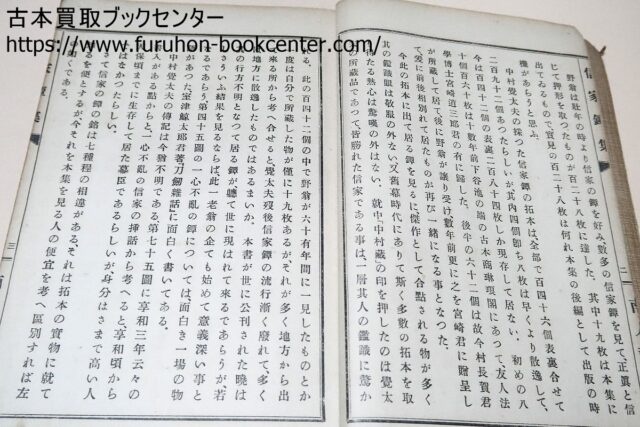 古本買取ブックセンター
https://www.furuhon-bookcenter.com/
信家鐔集
二
野翁は壯年の時より信家の鐔を好み數多の信家鐔を見て、正眞と信
じて押形を取つたものが二百二十八枚に達した。其中十九枚は本集に
出てゐるもので、實見の二百二十八枚は何れ本集の後編として出版の時
機があらうと思ふ。
中村覺太夫の採つた信家鐔の拓本は、全部で百四十六個表裏合せて
二百九十二個あつたらしいが其內四個卽ち八枚は早くより散逸して、
今は百四十二個の表裏二百八十四枚しか現存して居ない。初めの八
十個百六十枚は十數年前下谷池の端の古本商琳琅閣にあつて友人法
學博士宮崎道三郎君の有に歸した。半後の六十二個は故今村長賀君
が所藏して居て後に野翁が讓り受け數年前更に之を宮崎君に贈呈し
て、爰に前後相別れて居たものが再び一緖になる事となつた。
今此の拓本に出て居る鐔を見るに傑作として合點される物が多く
其の鑑識眼は敬服の外ない。又舊幕時代にありて斯く多數の拓本を取
得たる熱心は驚嘆の外はない。就中「中村藏」の印を押したのは覺太
の所藏品であつて皆勝れた信家である事は、一層其人の鑑識に驚か
れる。此の百四十二個の中で野翁が六十有年間に一見したものとか
度は自分で所藏した物が僅に十九枚あるが、それが多く地方から出
來る所から考へ合せると、覺太夫歿後信家鐔の流行漸く廢れて、多く
地方に散逸したものではあるまいか、本書が世に公刊された曉は
の行方不明となつて居る鐔が聽て世に現はれて來るであらうが、若
さういふ結果を見るならば、此一老翁の企ても始めて意義深い事と
るであらう。第四十五圖の一心不亂の鐔については、面白き一場の物
があつた。室津鯨太郞君著「刀劍雜話」に面白く書いてある。
中村覺太夫の傳記は今猶不明である。第七十五圖に享和三年云々の
入がある點からと、一心不亂の信家の揷話から考へると享和頃から
保頃までに生存して居た幕臣であるらしいが、身分はさまで高い人
はなかつたらしい。
來て信家の鐔の銘は七種程の相違がある。それは拓本の實物に就て
るを便とするが今それを本集を見る人の便宜を考へ區別すれば左
如くである。
三